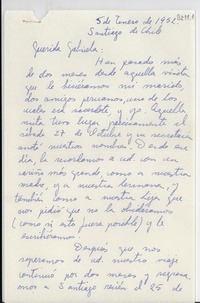 5 de Enero de 195
Santiago de Chile
Querida Gabriela:
Han pasado más
de dos meses desde aquella visita
que le hiciéramos mi marido,
dos amigos peruanos, uno de los
cuales era sacerdote, y yo. Aquella
visita tuvo lugar precisamente el
sábado 27 de Octubre y en
anoté nuestros nombres. Desde ese
día, la recordamos a ud. con un
cariño más grande, como a nuestra
madre, o a nuestra hermana, y
también como a nuestra hija que
nos pidió que no la olvidáramos
(como si esto fuera posible) y le
escribiéramos.
Después que nos
separamos de ud. nuestro viaje
continuó por dos meses y regresa-
mos a Santiago recién el 25 de